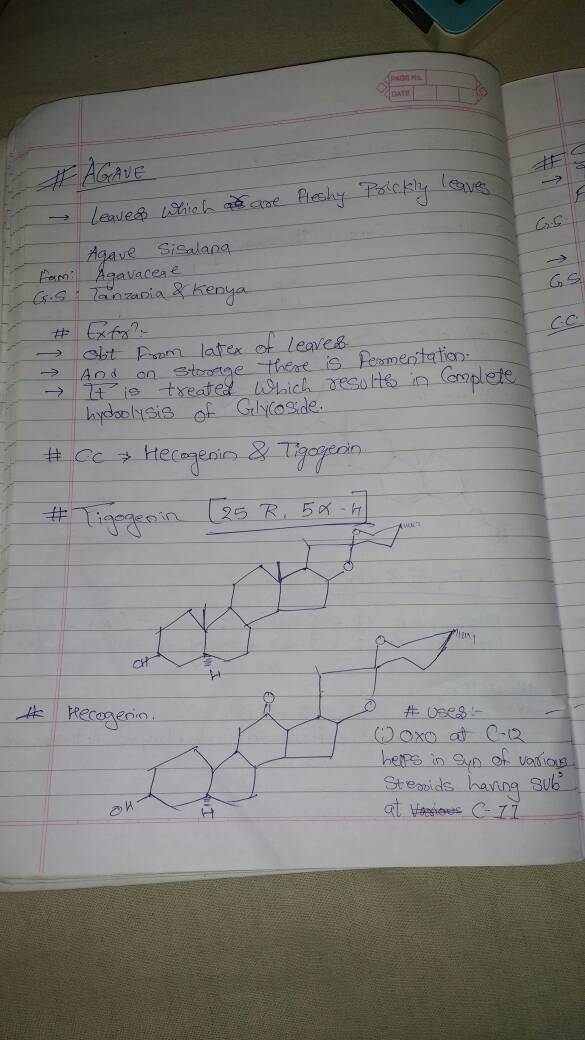 PAGE No.
DATE
# AGAVE
→ Leaves which are fleshy Prickly leaves
Agave Sisalana
Fam: Agavaceae
G.S: Tanzania & Kenya
# Extrⁿ:-
→ Obt From latex of leaves
→ And on storage there is fermentation.
→ It is treated which results in Complete
hydrolysis of Glycoside.
# C.C → Hecogenin & Tigogenin
# Tigogenin [25 R, 5α-H]
O
O
OH
H
# Hecogenin.
O
O
O
OH
H
# Uses:-
(i) OXO at C-12
helps in syn of various
Steroids having Subˢ
at C-11
#
→
G.S.
→
G.S
C.C